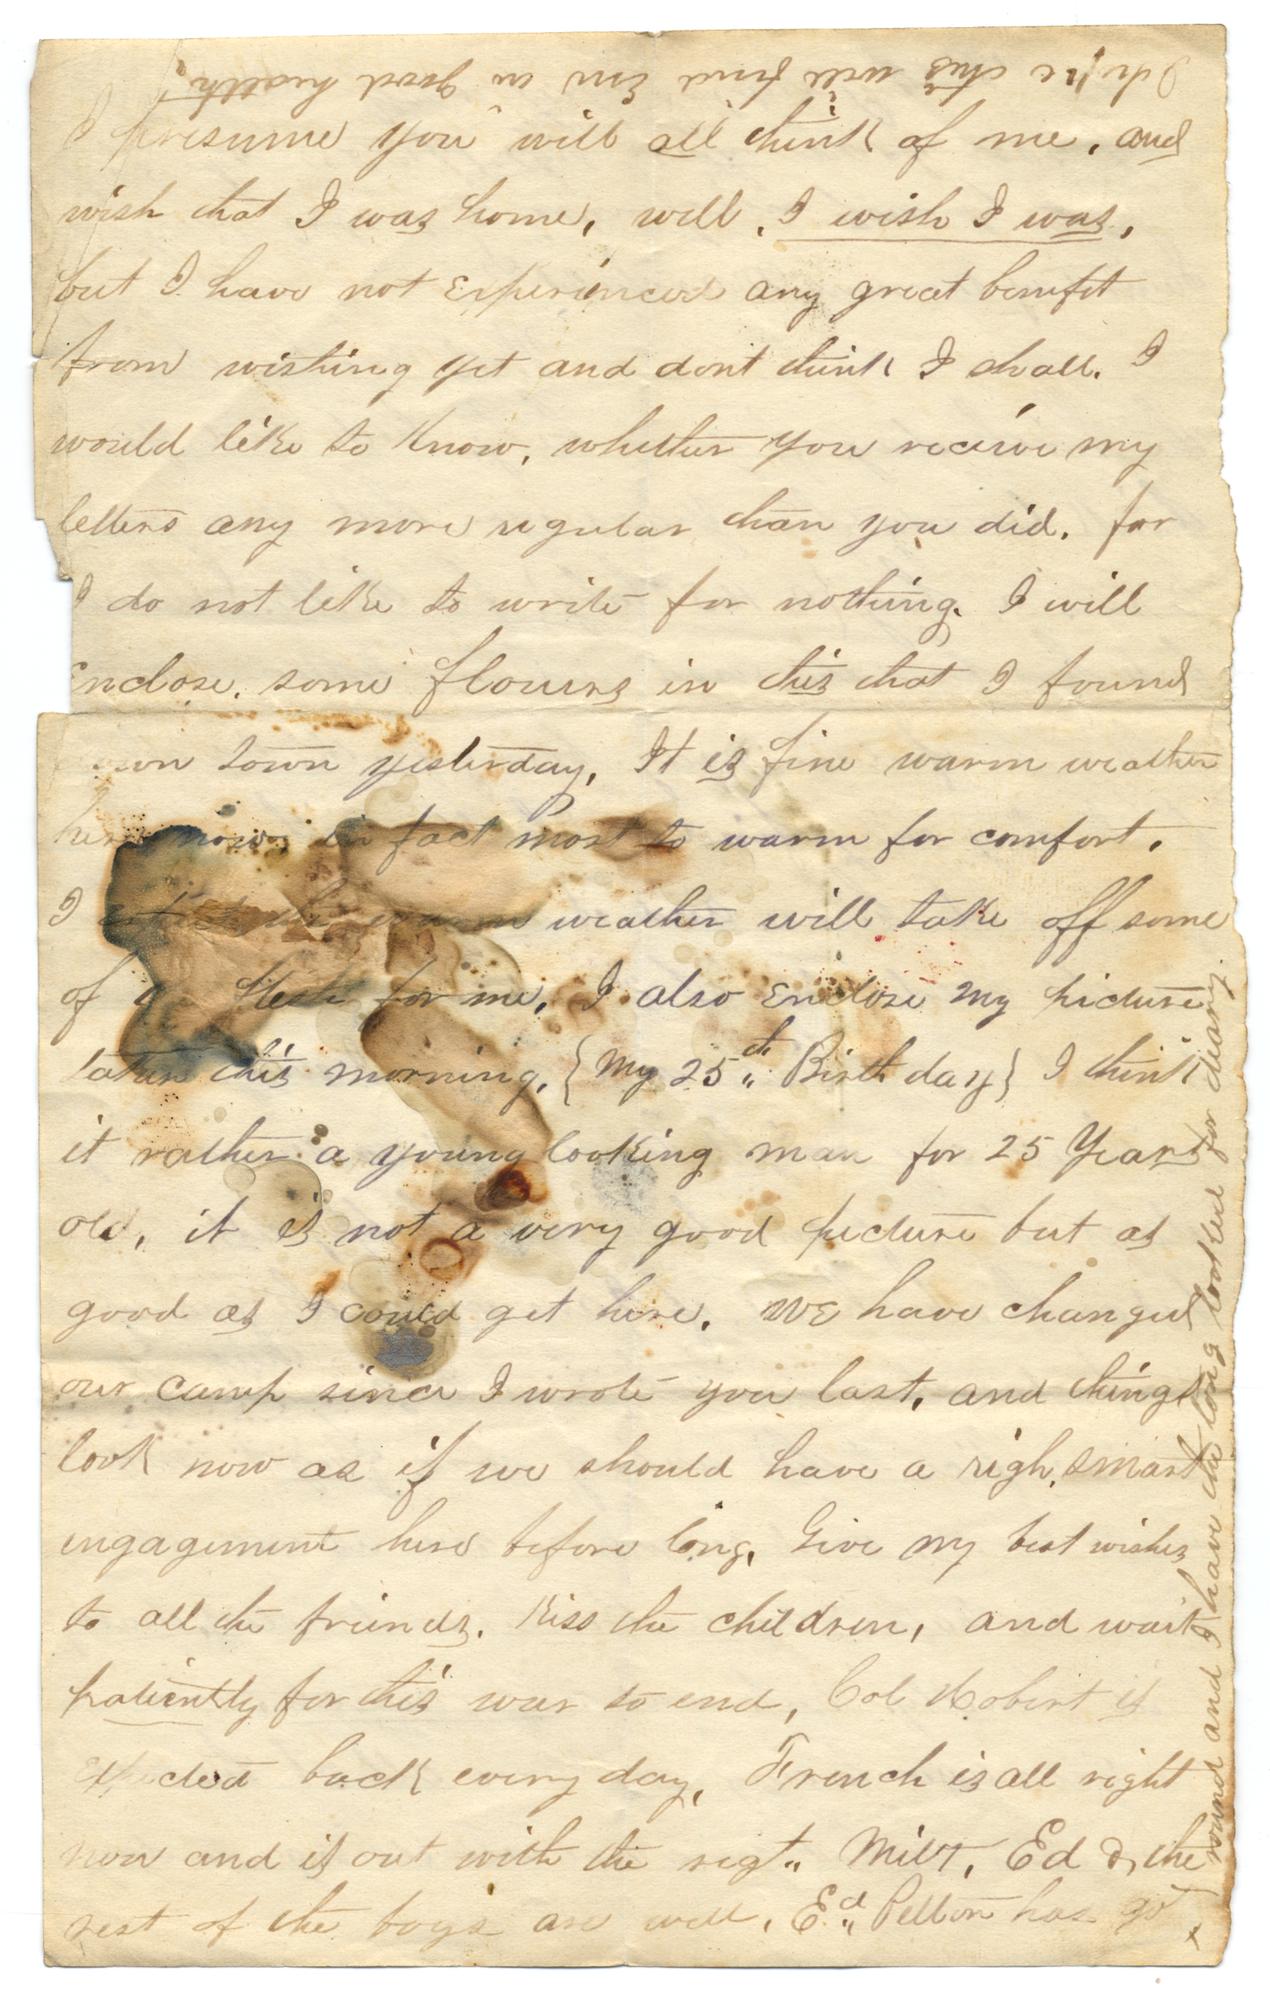 I hope this will find Em in good health.
I presume you will all think of me, and
wish that I was home, well, I wish I was,
but I have not experienced any great benefit
from wishing yet and dont think I shall. I
would like to know, whether you receive my
letters any more regular than you did. for
I do not like to write for nothing. I will
Enclose. some flowers in this that I found
down town yesterday, It is fine warm weather
here now, in fact most to warm for comfort.
I the warm weather will take off some
of flesh for me, I also Enclose my picture
taken this morning, {My 25th Birth day} I think
it rather a young looking man for 25 Years
old, it is not a very good picture but as
good as I could get here. WE have changed
our camp since I wrote you last, and things
look now as if we should have a righ, smart
engagement here before long, Give my best wishes
to all the friends. Kiss the children, and wait
patiently for this war to end, Col Robert is
Expected back every day, French is all right
now and is out with the regt. Milt, Ed & the
rest of the boys are well, Ed Pelton has got
round and I have the long looked for diary.